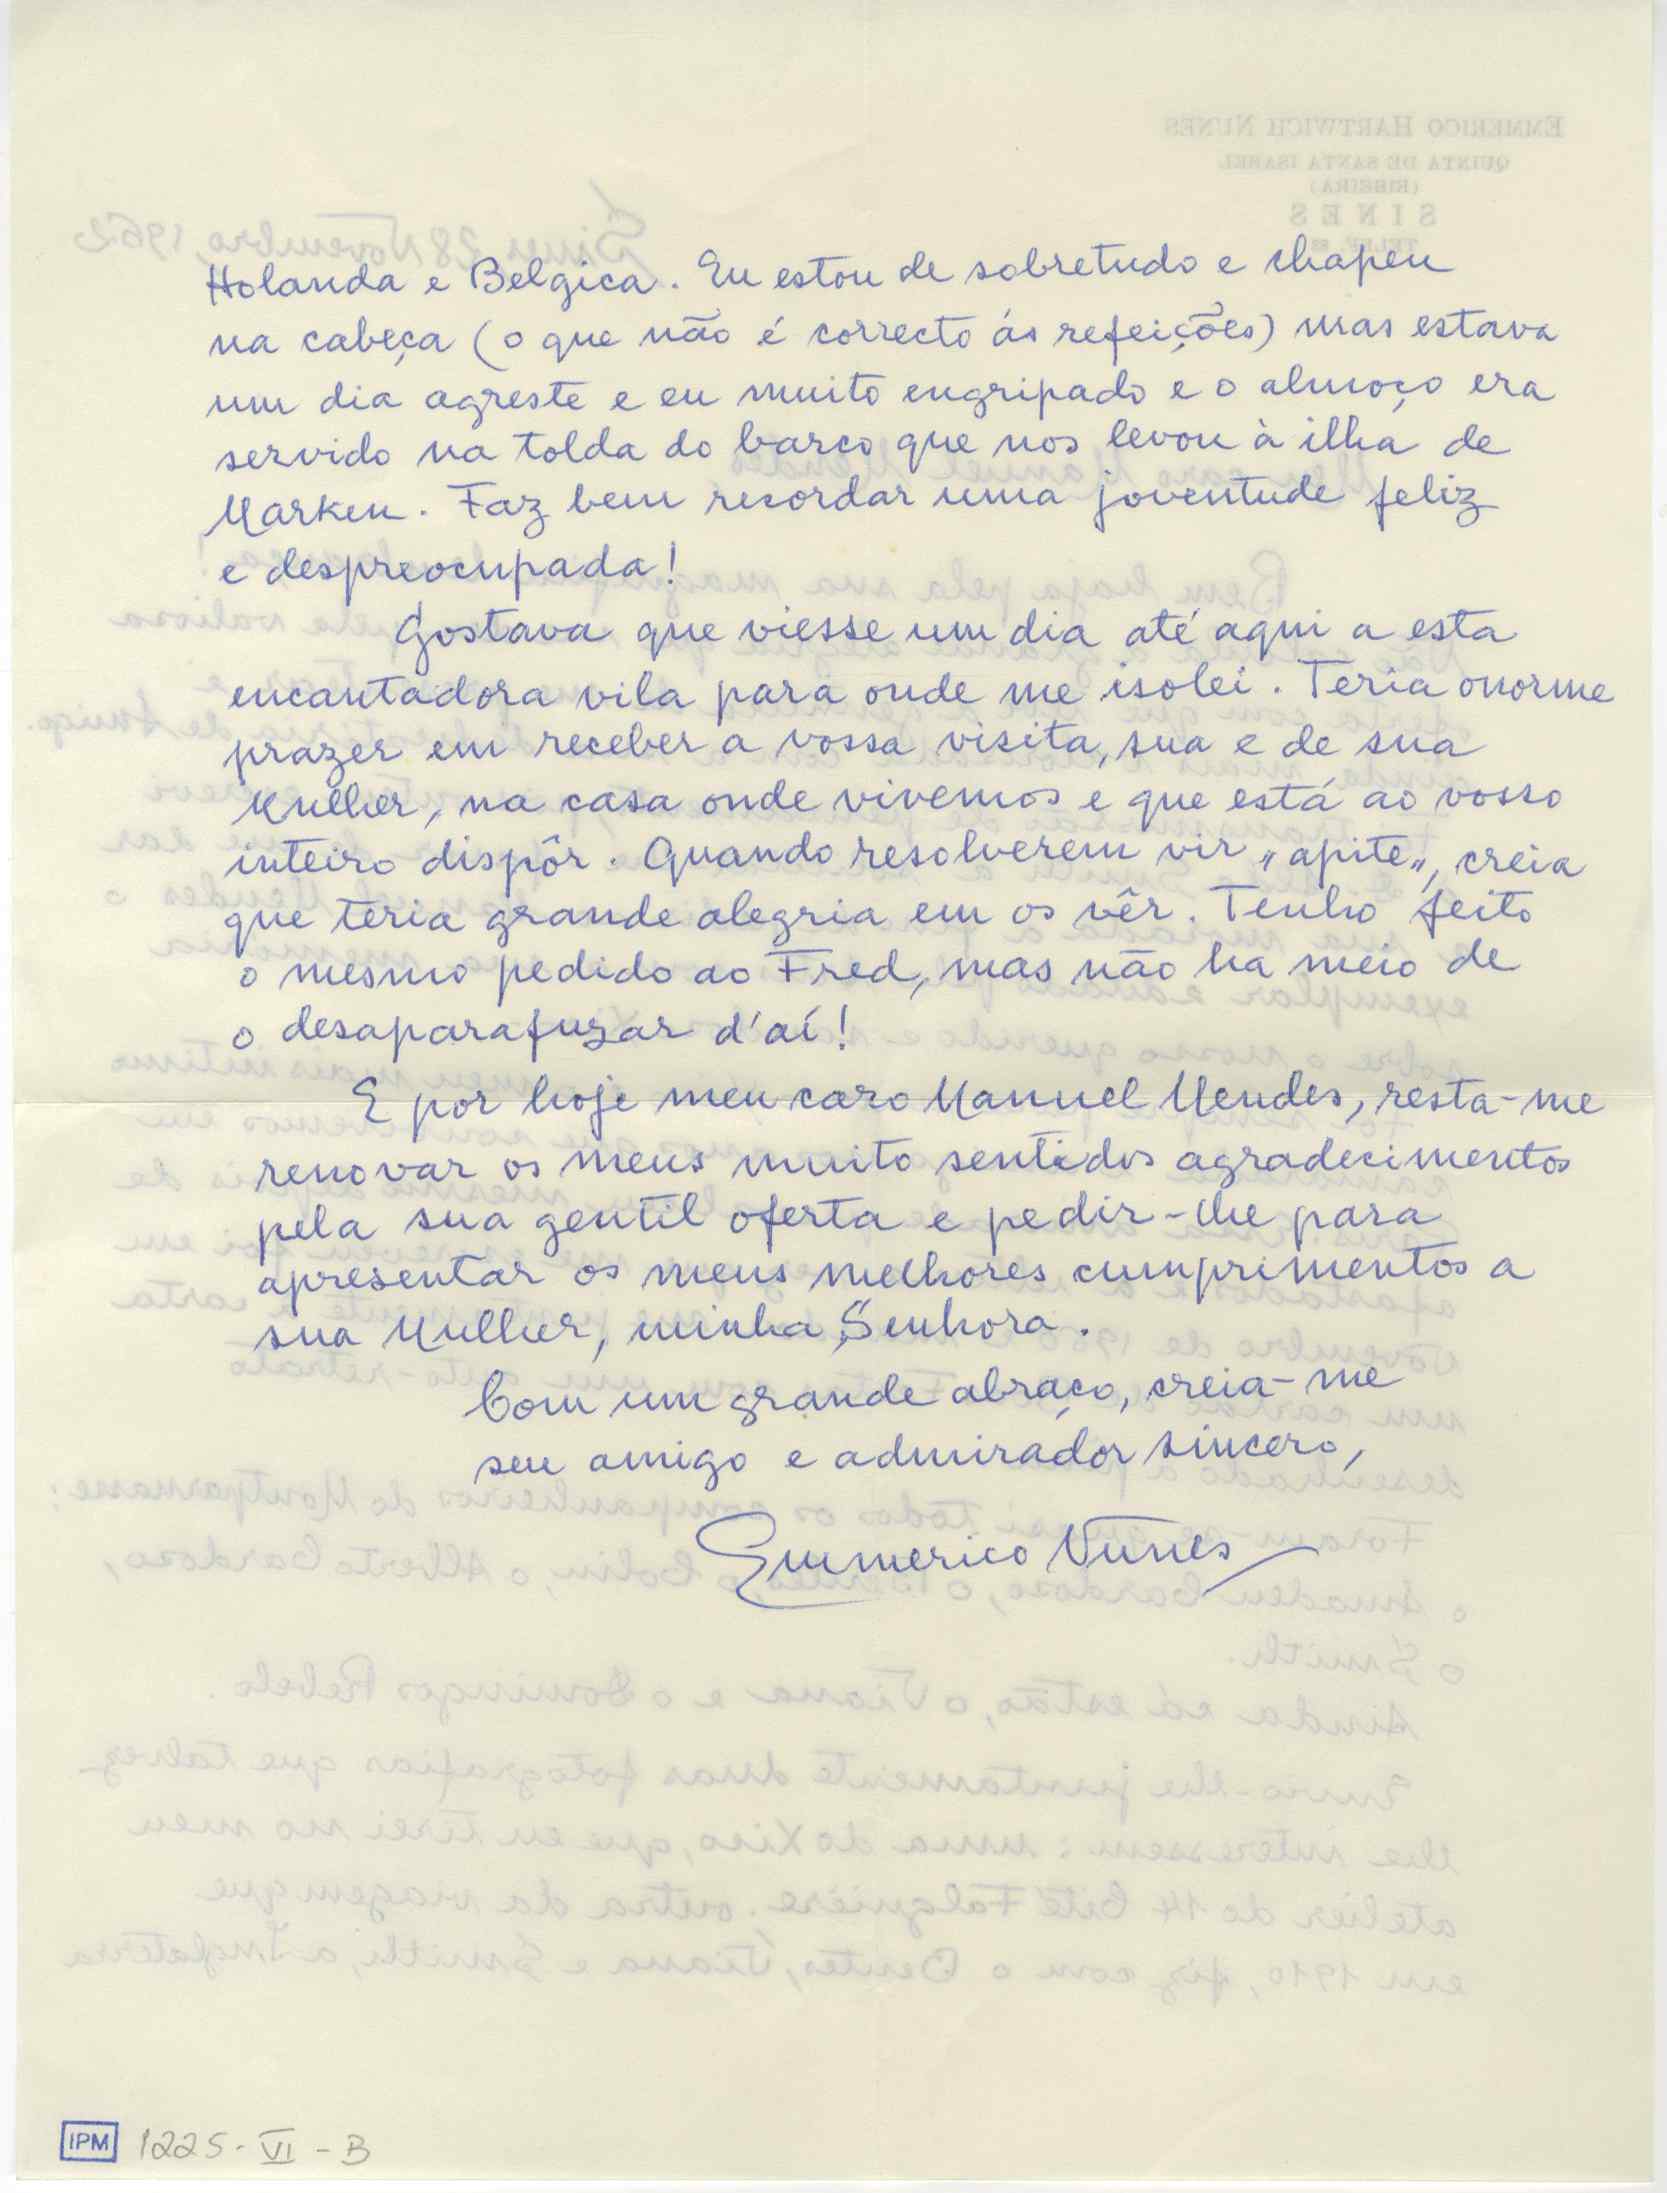 Holanda e Belgica. Eu estou de sobretudo e chapeu
na cabeça (o que não é correcto ás refeições) mas estava
um dia agreste e eu muito engripado e o almoço era
servido na tolda do barco que nos levou à ilha de
Marken. Faz bem recordar uma joventude feliz
e despreocupada!
Gostava que viesse um dia até aqui a esta
encantadora vila para onde me isolei. Teria enorme
prazer em receber a vossa visita, sua e de sua
Mulher, na casa onde vivemos e que está ao vosso
inteiro dispôr. Quando resolverem vir "apite", creia
que teria grande alegria em os vêr. Tenho feito
o mesmo pedido ao Fred, mas não ha meio de
o desaparafuzar d'aí!
E por hoje meu caro Manuel Mendes, resta-me
renovar os meus muito sentidos agradecimentos
pela sua gentil oferta e pedir-lhe para
apresentar os meus melhores cumprimentos a
sua Mulher, minha Senhora.
Com um grande abraço, creia-me
seu amigo e admirador sincero,
Emmerico Nunes
IPM 1225-VI-B